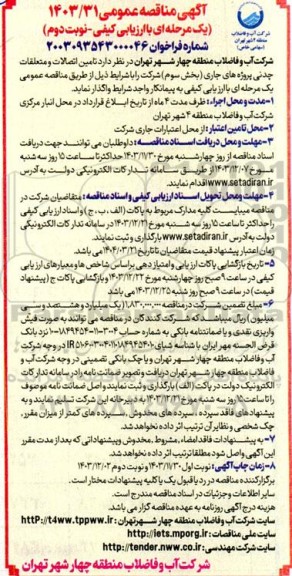 شرکت آب و فاضلاب
منطقه ۴ شهر تهران
(سهامی خاص)
آگهی مناقصه عمومی ۱۴۰۳/۳۱
(یک مرحله‌ای با ارزیابی کیفی-نوبت دوم)
شماره فراخوان ۲۰۰۳۰۹۳۵۴۳۰۰۰۰۴۶
شرکت آب و فاضلاب منطقه چهار شهر تهران در نظر دارد تامین اتصالات و متعلقات
چدنی پروژه های جاری (بخش سوم) شرکت را با شرایط ذیل از طریق مناقصه عمومی
یک مرحله ای با ارزیابی کیفی به پیمانکار واجد شرایط واگذار نماید.
۱-مدت و محل اجراء: ظرف مدت ۴ ماه از تاریخ ابلاغ قرارداد در محل انبار مرکزی
شرکت آب و فاضلاب منطقه ۴ شهر تهران
۲-محل تامین اعتبار: از محل اعتبارات جاری شرکت
۳- مهلت و محل دریافت اسناد مناقصه: داوطلبان می توانند جهت دریافت
اسناد مناقصه از روز چهارشنبه مورخ ۱۴۰۳/۱۱/۳۰ حداکثر تا ساعت ۱۵ روز سه شنبه
مورخ ۱۴۰۳/۱۲/۰۷ از طریق سامانه تدارکات الکترونیکی دولت به آدرس
www.setadiran.ir اقدام نمایند.
۴- مهلت و محل تحویل اسناد ارزیابی کیفی و اسناد مناقصه: متقاضیان شرکت در
مناقصه میبایست کلیه مدارک مربوط به پاکات (الف، ب، ج) و اسناد ارزیابی کیفی
را حداکثر تا ساعت ۱۵ روز سه شنبه مورخ ۱۴۰۳/۱۲/۲۱ در سامانه تدارکات الکترونیکی
دولت به آدرس www.setadiran.ir بارگذاری و ثبت نمایند.
زمان اعتبار پیشنهاد قیمت متقاضیان تا تاریخ ۱۴۰۴/۰۳/۲۱ می باشد.
۵- تاریخ بازگشایی پاکات ارزیابی و امتیاز دهی براساس شاخص ها و معیارهای ارزیابی
کیفی در ساعت ۹ صبح روز چهارشنبه مورخ ۱۴۰۳/۱۲/۲۲ و بازگشایی پاکات ج (پیشنهاد
قیمت) در ساعت ۹ صبح روز شنبه ۱۴۰۳/۱۲/۲۵ می باشد
۶- مبلغ تضمین شرکت در مناقصه ۱،۸۳۰،۰۰۰،۰۰۰ (یک میلیارد و هشتصد و سی
میلیون) ریال میباشد که شرکت کنندگان در مناقصه می توانند به صورت فیش
واریزی نقدی و یا ضمانتنامه بانکی به شماره حساب
قرض الحسنه مهر ایران با شناسه شبای
آب و فاضلاب منطقه چهار شهر تهران و یا چک بانکی تضمینی در وجه شرکت آب و
فاضلاب منطقه چهار شهر تهران دریافت و تصویر ضمانت نامه را در سامانه تدارکات
الکترونیک دولت در پاکت (الف) بارگذاری و ثبت نمایند و اصل ضمانت نامه موصوف
را تا ساعت ۹ روز سه شنبه مورخ ۱۴۰۳/۱۲/۲۱ به دبیرخانه این شرکت تسلیم نمایند و به
پیشنهادهای فاقد سپرده، سپرده های مخدوش، سپرده های کمتر از میزان مقرر،
چک شخصی و نظایر آن ترتیب اثر داده نخواهد شد.
۷- به پیشنهادات فاقد امضاء، مشروط، مخدوش و پیشنهاداتی که بعد از مدت مقرر
این آگهی واصل شود مطلقا ترتیب اثر داده نخواهد شد.
۸-زمان چاپ آگهی: نوبت اول ۱۴۰۳/۱۱/۳۰ و نوبت دوم ۱۴۰۳/۱۲/۰۲
برگزارکننده مناقصه در رد یا قبول یک یا کلیه پیشنهادات مختار است.
سایر اطلاعات و جزئیات در اسناد مناقصه مندرج است.
هزینه درج آگهی روزنامه به عهده مناقصه گزار می باشد.
سایت شرکت آب و فاضلاب منطقه چهار شهرتهران : httP://t4ww.tppww.ir
سایت ملی مناقصات: http://iets.mporg.ir
سایت شرکت مهندسی: http://tender.nww.co.ir
شرکت آب و فاضلاب منطقه چهار شهر تهران